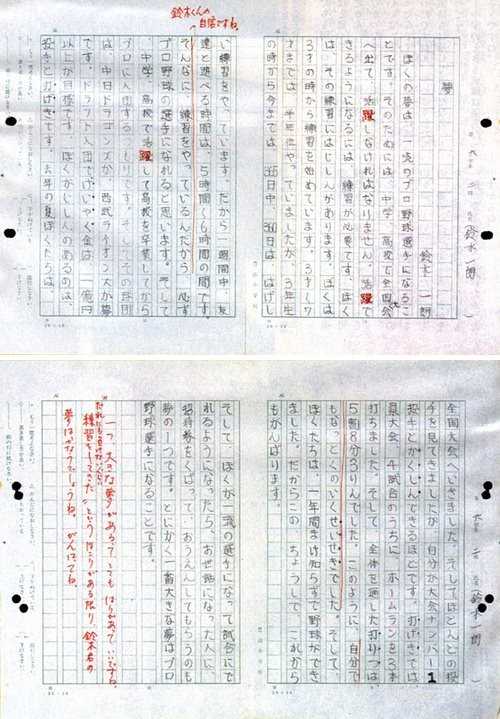 六年 二組 鈴木一朗
夢
鈴木 一朗
ぼくの夢は、一流のプロ野球選手になるこ
とです。そのためには、中学、高校で全国大会
へ出て、活躍しなければなりません。活躍で
きるようになるには、練習が必要です。ぼく
は、その練習にはじしんがあります。ぼくは
3才の時から練習を始めています。3才〜7
才までは、半年位やっていましたが、3年生
の時から今までは、365日中、360日は、はげし
鈴木くんの
自信ですね。
い練習をやっています。だから一週間中、友
達と遊べる時間は、5時間〜6時間の間です。
そんなに、練習をやっているんだから、必ず
プロ野球の選手になれると思います。そして
中学、高校で活躍して高校を卒業してから
プロに入団するつもりです。そしてその球団
は、中日ドラゴンズか、西武ライオンズが夢
です。ドラフト入団でけいやく金は、一億円
以上が目標です。ぼくがじしんのあるのは、
投手と打げきです。去年の夏ぼくたちは、
六年 二組 鈴木一朗
全国大会へいきました。そしてほとんどの投
手を見てきましたが、自分が大会ナンバー1
投手とかくしんできるほどです。打げきでは
県大会、4試合のうちに、ホームランを3本
打ちました。そして、全体を通した打りつは
5割8分3りんでした。このように、自分で
もなっとくのいくせいせきでした。そして、
ぼくたちは、一年間まけ知らずで野球ができ
ました。だからこの、ちょうしで、これから
もがんばります。
そして、ぼくが一流の選手になって試合にで
れるようになったら、お世話になった人に、
招待券をくばって、おうえんしてもらうのも
夢の1つです。とにかく一番大きな夢はプロ
野球選手になることです。
練習をしてきた"というほこりがある限り、鈴木君の
がんばってね。